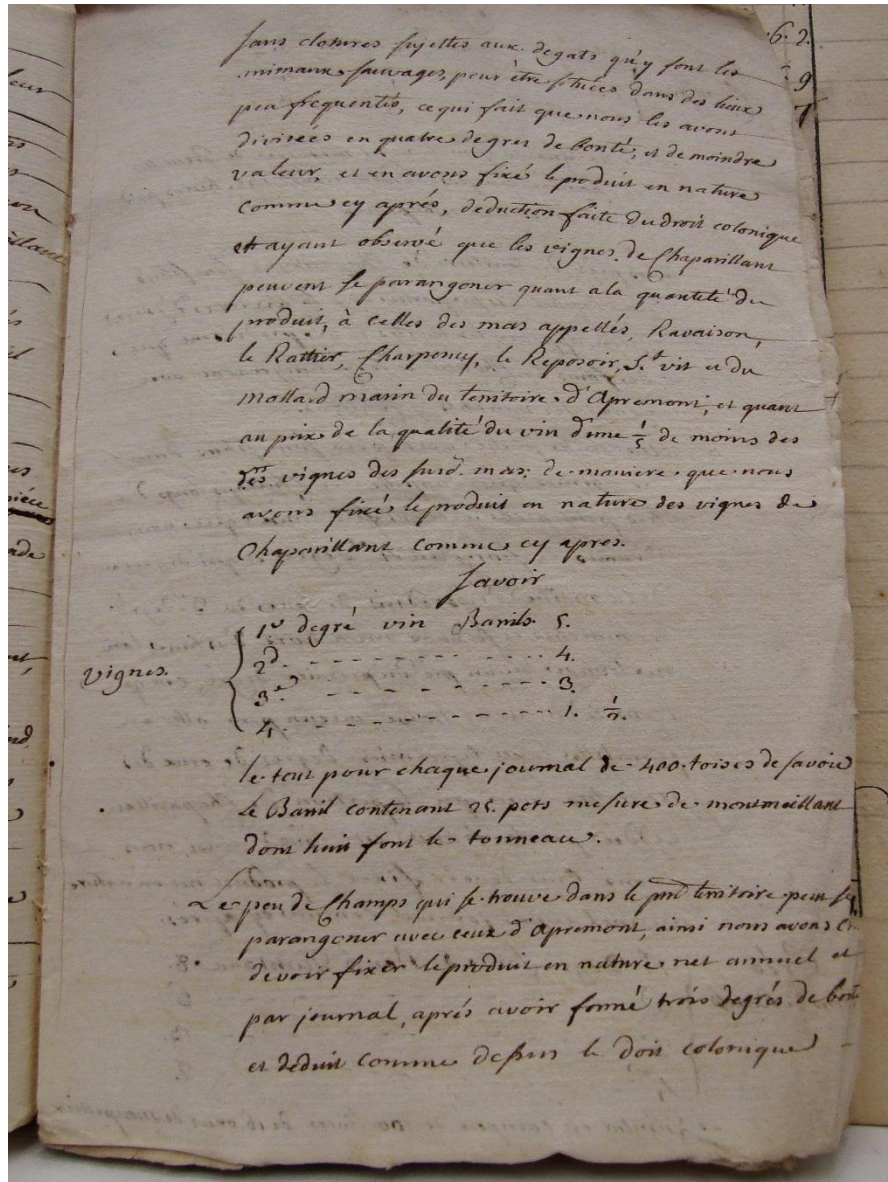 sans clotures sujettes aux degats qu'y font les
animaux sauvages, pour être situées dans des lieux
peu frequentés, ce qui fait que nous les avons
divisées en quatre degres de bonté, et de moindre
valeur, et en avons fixé le produit en nature
comme cy aprés, deduction faite du droit colonique
et ayant observé que les vignes de Chaparillant
peuvent se parangoner quant a la quantité du
produit, à celles des mas appellés, Ravaison,
le Rattier, Charpency, le Reposoir, S.t vit et du
mollard marin du territoire d'Apremont, et quant
au prix de la qualité du vin d'une 1/5 de moins des
vignes des surd. mas; de maniere que nous
avons fixé le produit en nature des vignes de
Chaparillant comme cy apres.
Savoir
vignes.
1er degré vin Barils 5.
2d. - - - - - - - - - - - 4.
3e - - - - - - - - - - - 3.
4. - - - - - - - - - - - 1. 1/2.
le tout pour chaque journal de 400 toises de Savoie
Le Baril contenant 25. pots mesure de montmeillant
dont huit font le tonneau.
Le peu de Champs qui se trouve dans le pnt territoire peut se
parangoner avec ceux d'Apremont, ainsi nous avons
devoir fixer le produit en nature net annuel et
par journal, aprés avoir formé trois degrés de bonté
et deduit comme dessus le doit colonique
6. 2.
9
7